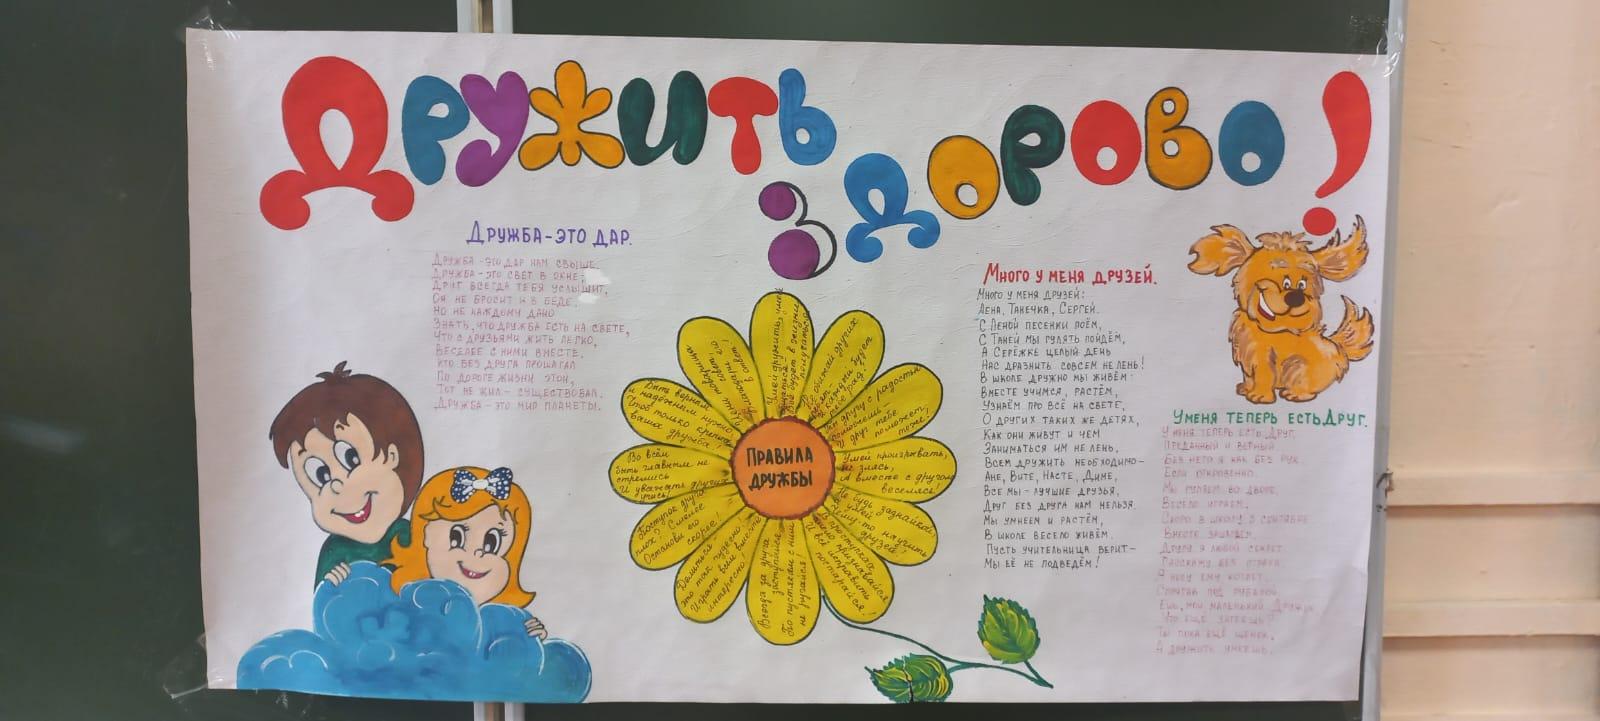 Дружить
здорово!
Дружба - это дар.
Дружба - это дар нам свыше,
Дружба - это свет в окне;
Друг всегда тебя услышит,
Он не бросит и в беде.
Но не каждому дано
Знать, что дружба есть на свете,
Что с друзьями жить легко,
Веселее с ними вместе.
Кто без друга прошагал
По дороге жизни этой,
Тот не жил - существовал.
Дружба - это мир планеты.
Правила
дружбы
Помогай другу с радостью
поможешь -
И друг тебе
поможет,
тоже!
Умей проигрывать,
не злясь,
А вместе с другом
веселясь!
Не будь зазнайкой,
Умей
чему-то научить
друзей!
В проступках
признавайся
И всё исправить
постарайся!
Всегда за друга
заступись
По пустякам с ним
не ругайся!
Делиться -
это так чудесно
Играть всем вместе
интересно!
Поступок друга
плох? Смелее
Останови его
скорее!
Во всём
быть главным не
стремись
И уважать других
учись!
Быть верным
и надёжным нужно
Чтоб только крепла
ваша дружба
Много у меня друзей.
Много у меня друзей:
Лена, Танечка, Сергей.
С Леной песенки поём,
С Таней мы гулять пойдём,
А Серёжке целый день
Нас дразнить совсем не лень!
В школе дружно мы живём:
Вместе учимся, растём,
Узнаём про всё на свете,
О других таких же детях,
Как они живут и чем
Заниматься им не лень,
Всем дружить необходимо -
Ане, Вите, Насте, Диме,
Все мы - лучшие друзья,
Друг без друга нам нельзя.
Мы умнеем и растём,
В школе весело живём.
Пусть учительница верит -
Мы её не подведём!
У меня теперь есть Друг.
У меня теперь есть Друг,
Преданный и верный.
Без него я как без рук,
Если откровенно.
Мы гуляем во дворе,
Весело играем,
Скоро в школу в сентябре
Вместе
Другу я любой секрет
Расскажу без страха.
Я несу ему котлет,
Спрятав под рубахой.
Ешь, мой маленький Дружок,
Что ещё
Ты пока ещё щенок,
А дружить умеешь.